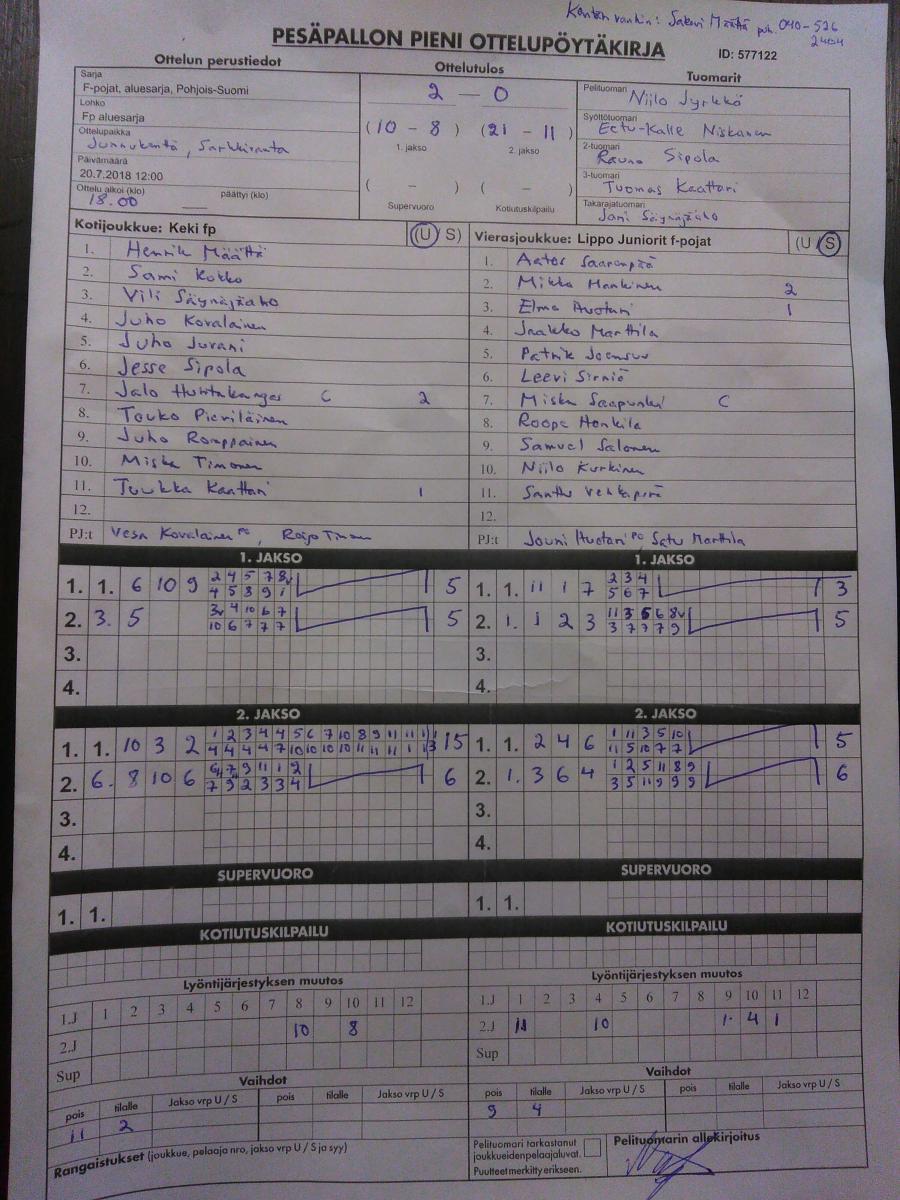 Kentän vanhin: Sakari Määttä puh. 040-526
2404
PESÄPALLON PIENI OTTELUPÖYTÄKIRJA
ID: 577122
Ottelun perustiedot
Ottelutulos
Tuomarit
Sarja
F-pojat, aluesarja, Pohjois-Suomi
Lohko
Fp aluesarja
Ottelupaikka
Junnukenttä, Sarkkiranta
Päivämäärä
20.7.2018 12:00
Ottelu alkoi (klo) päättyi (klo)
18.00
2 — 0
(10 – 8) (21 – 11)
1. jakso 2. jakso
( – ) ( – )
Supervuoro Kotiutuskilpailu
Pelituomari
Niilo Jyrkkä
Syöttötuomari
Eetu-Kalle Niskanen
2-tuomari
Rauno Sipola
3-tuomari
Tuomas Kaattari
Takarajatuomari
Jani Säynäjäaho
Kotijoukkue: Keki fp (U / S)
1. Henrik Määttä
2. Sami Kokko
3. Vili Säynäjäaho
4. Juho Kovalainen
5. Juho Juvani
6. Jesse Sipola
7. Jalo Huhtakangas C 2
8. Touko Pieviläinen
9. Juho Romppainen
10. Miska Timonen
11. Tuukka Kaattari 1
12.
PJ:t Vesa Kovalainen PC, Reijo Timonen
Vierasjoukkue: Lippo Juniorit f-pojat (U / S)
1. Aatos Saarenpää
2. Mikko Hankinen 2
3. Elmo Huotari 1
4. Jaakko Marttila
5. Patrik Joensuu
6. Leevi Sirniö
7. Miska Saapunki C
8. Roope Honkila
9. Samuel Salonen
10. Niilo Kurkinen
11. Santtu Vehkaperä
12.
PJ:t Jouni Huotari PC Satu Marttila
1. JAKSO
1. 1. 6 10 9
2 4 5 7 8v
4 5 8 9 1
5
2. 3. 5
3v 4 10 6 7
10 6 7 7 7
5
3.
4.
1. JAKSO
1. 1. 11 1 7
2 3 4
5 6 7
3
2. 1. 1 2 3
11 3 5 6 8v
3 7 7 7 9
5
3.
4.
2. JAKSO
1. 1. 10 3 2
1 2 3 4 4 5 6 7 10 8 9 11 11 1
4 4 4 4 7 10 10 10 10 11 11 11 1 1 3
15
2. 6. 8 10 6
6 7 9 11 1 2
7 9 2 3 3 4
6
3.
4.
2. JAKSO
1. 1. 2 4 6
1 11 3 5 10
11 5 10 7 7
5
2. 1. 3 6 4
1 2 5 11 8 9
3 5 11 9 9 9
6
3.
4.
SUPERVUORO
1. 1.
SUPERVUORO
1. 1.
KOTIUTUSKILPAILU
Lyöntijärjestyksen muutos
1.J 1 2 3 4 5 6 7 8 9 10 11 12
2.J 10 8
Sup
KOTIUTUSKILPAILU
Lyöntijärjestyksen muutos
1.J 1 2 3 4 5 6 7 8 9 10 11 12
2.J 11 10 1 4 1
Sup
Vaihdot
pois tilalle Jakso vrp U / S pois tilalle Jakso vrp U / S
11 2
Vaihdot
pois tilalle Jakso vrp U / S pois tilalle Jakso vrp U / S
9 4
Rangaistukset (joukkue, pelaaja nro, jakso vrp U / S ja syy)
Pelituomari tarkastanut
joukkueidenpelaajaluvat.
Puutteet merkitty erikseen.
Pelituomarin allekirjoitus